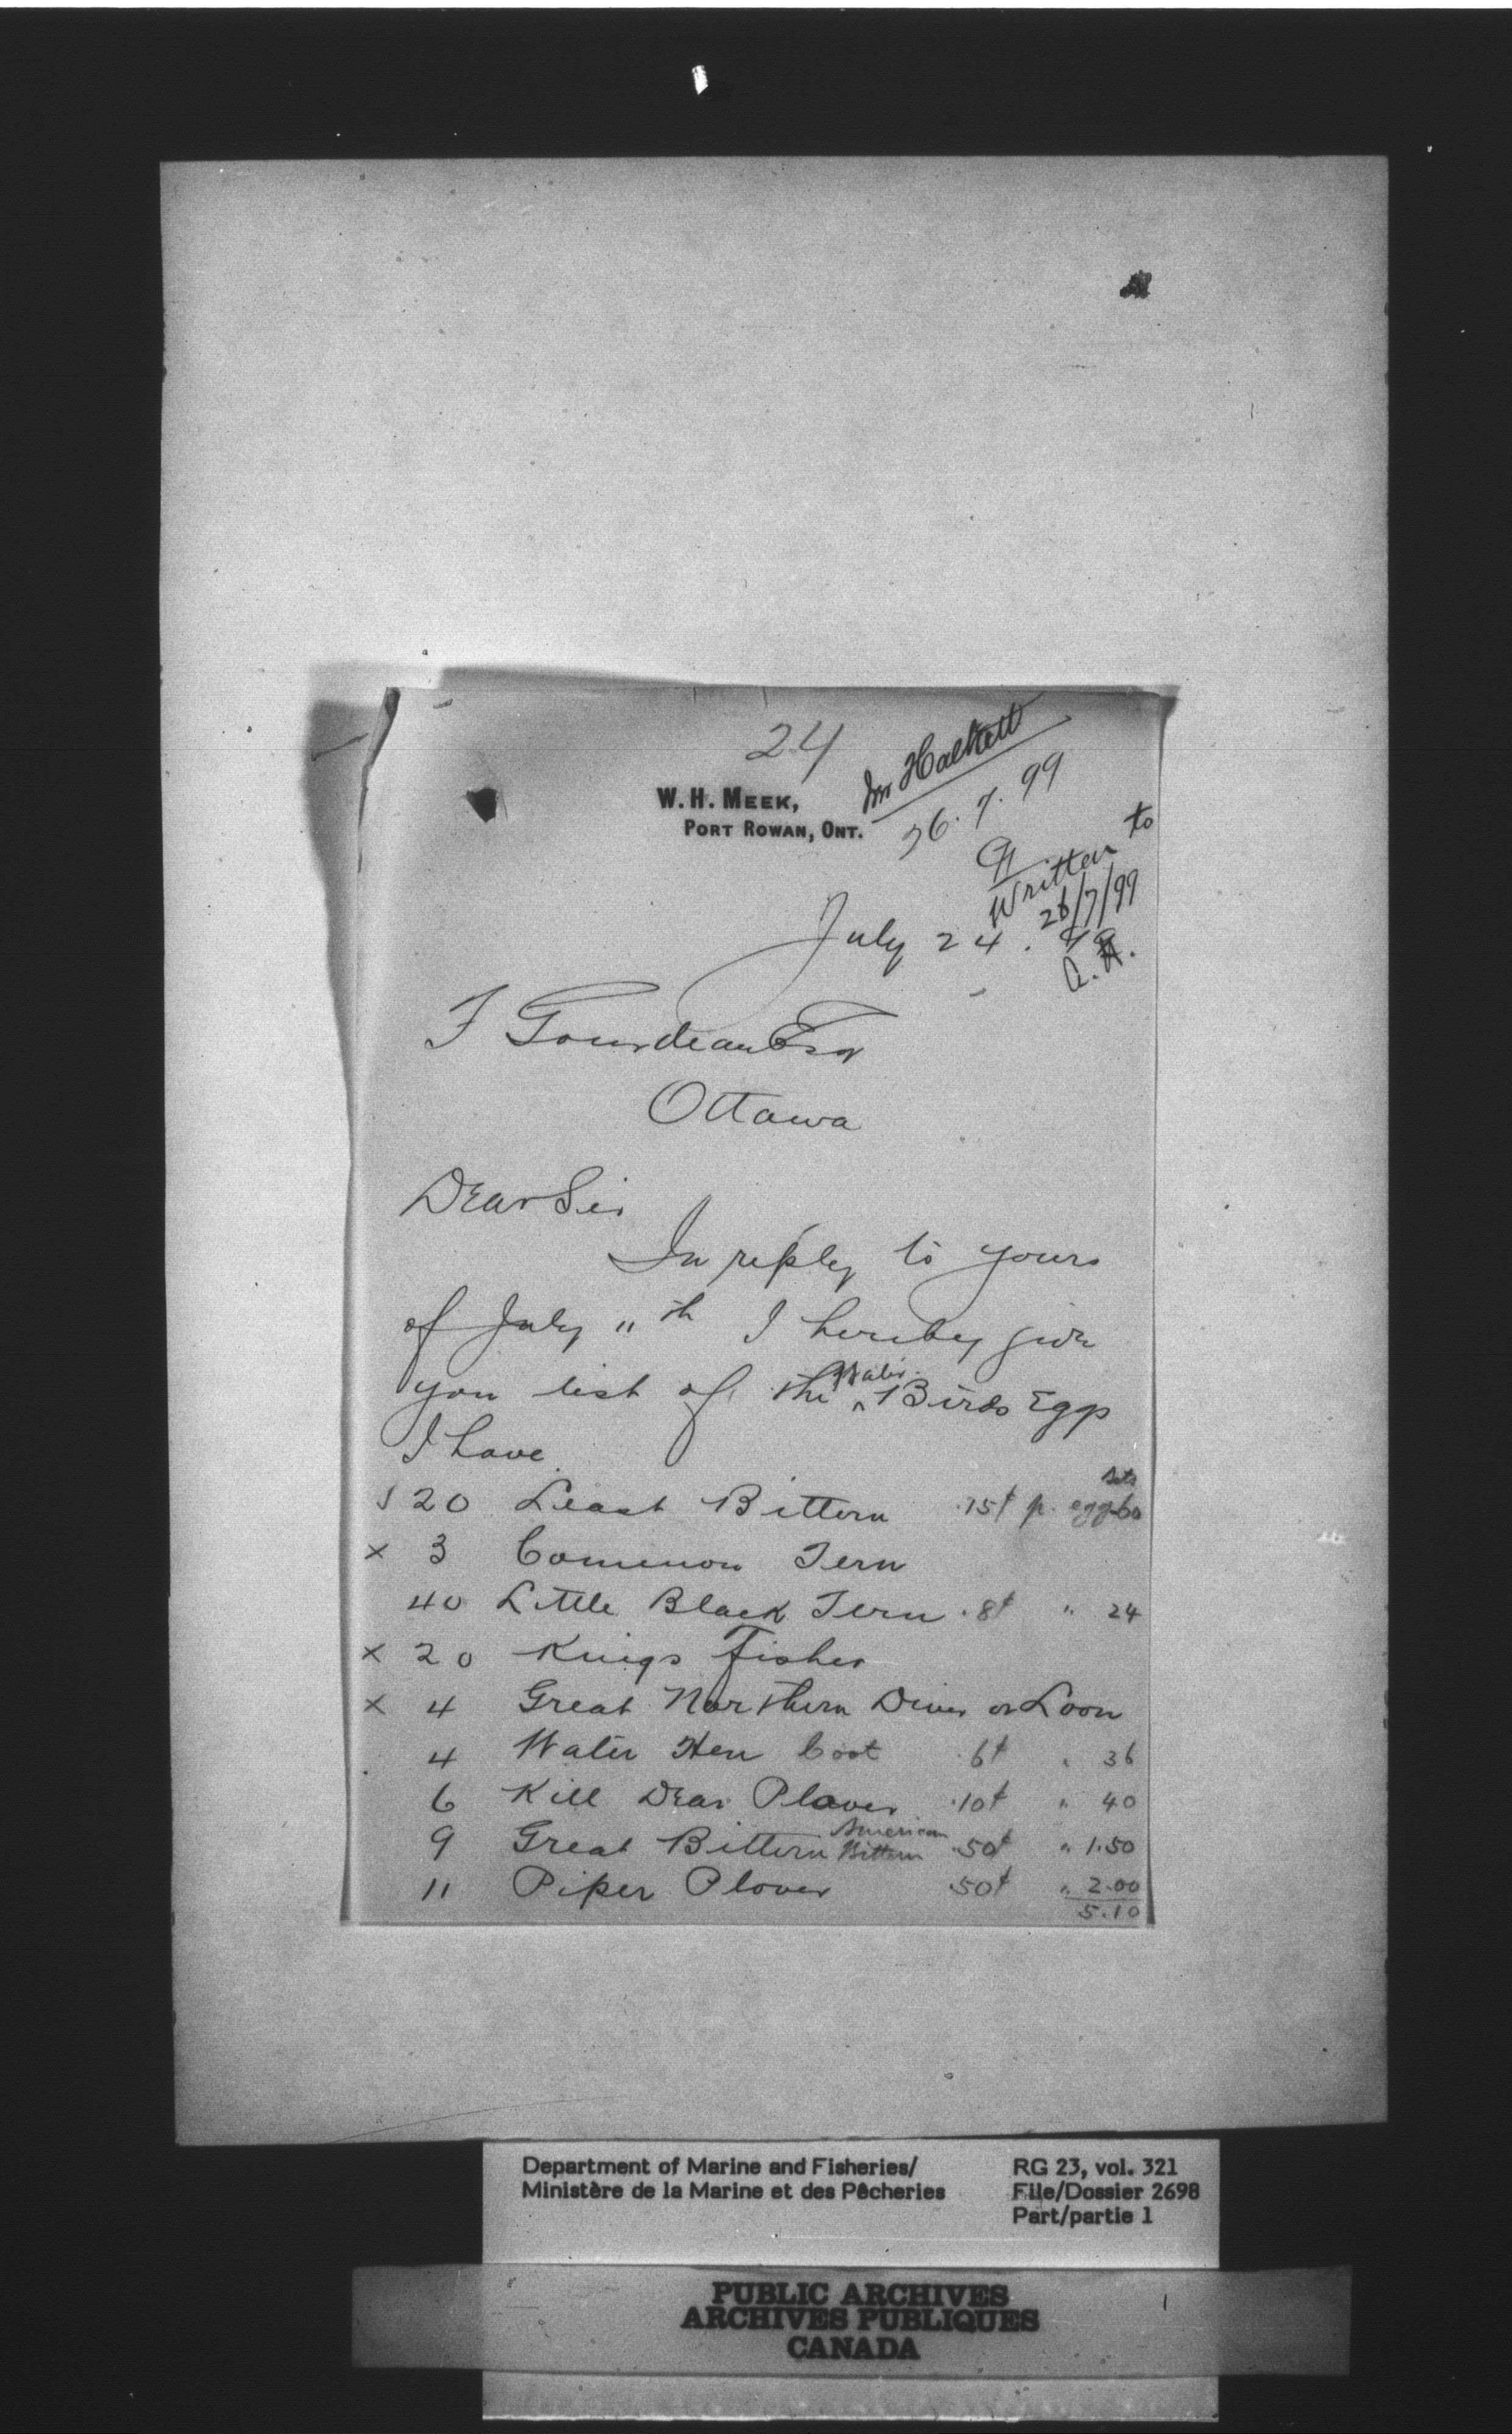 24
Mr Halkett
W. H. MEEK,
PORT ROWAN, ONT.
26. 7. 99
Written to
26/7/99
A. H.
July 24. 99
F Gourdeau Esq
Ottawa
Dear Sir
In reply to yours
of July 11th I hereby give
you list of the Water Birds Eggs
I have
20 Least Bittern .15¢ p. egg sets 60
x 3 Common Tern
40 Little Black Tern .8¢ " 24
x 20 Kings Fisher
x 4 Great Northern Diver or Loon
4 Water Hen Coot .6¢ " 36
6 Kill Dear Plover .10¢ " 40
9 Great Bittern American Bittern .50¢ " 1.50
11 Piper Plover .50¢ " 2.00
5.10
Department of Marine and Fisheries/
Ministère de la Marine et des Pêcheries
RG 23, vol. 321
File/Dossier 2698
Part/partie 1
PUBLIC ARCHIVES
ARCHIVES PUBLIQUES
CANADA